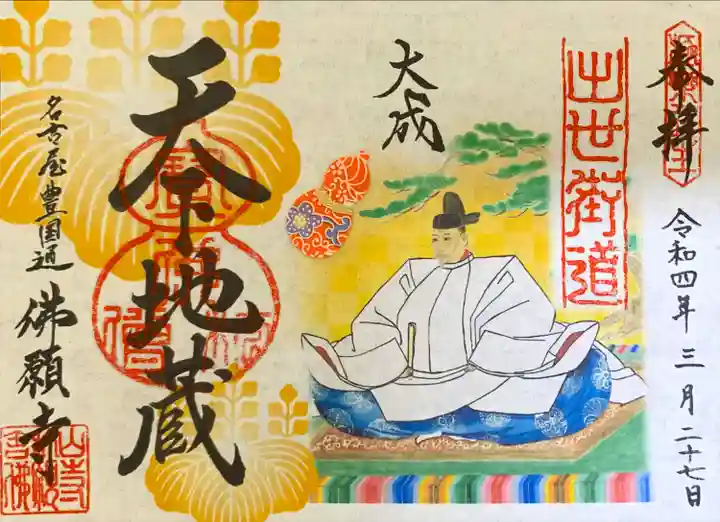 奉拝
令和四年三月二十七日
出世街道
大成
天下地蔵
名古屋豊国通
佛願寺